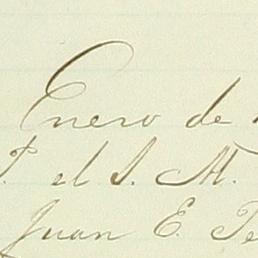 Enero de
P. el S. M.
Juan E.